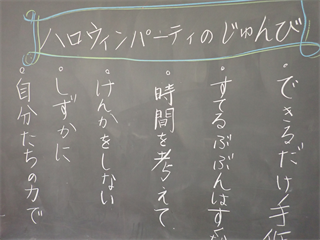 ハロウィンパーティのじゅんび
・できるだけ手作
・すてるぶぶんはすく
・時間を考えて
・けんかをしない
・しずかに
・自分たちの力で